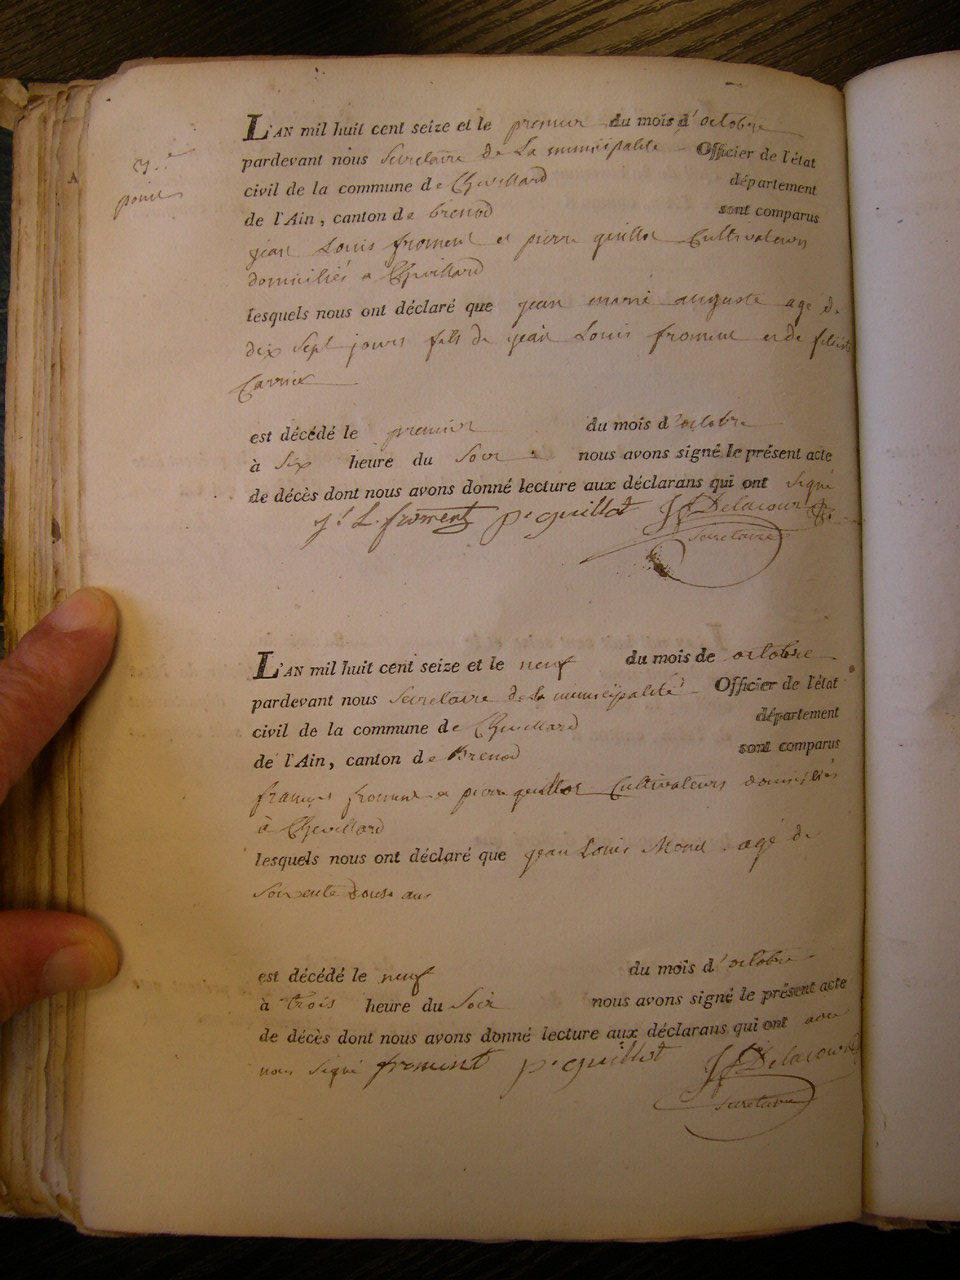 L'AN mil huit cent seize et le premier du mois d'octobre
pardevant nous Secretaire de La municipalité Officier de l'état
civil de la commune de Chevillard département
de l'Ain, canton de brenod sont comparus
jean Louis froment et pierre guillot Cultivateurs
domiciliés a Chevillard
lesquels nous ont déclaré que jean marie auguste age de
dix Sept jours fils de jean Louis froment et de
Carrier
est décédé le premier du mois d'octobre
à Six heure du Soir nous avons signé le présent acte
de décès dont nous avons donné lecture aux déclarans qui ont signé
j. L. froment p. guillot Delacour
Secretaire
L'AN mil huit cent seize et le neuf du mois de octobre
pardevant nous Secretaire de La municipalité Officier de l'état
civil de la commune de Chevillard département
de l'Ain, canton de Brenod sont comparus
françois froment et pierre guillot Cultivateurs domiciliés
à Chevillard
lesquels nous ont déclaré que jean Louis Monel agé de
Soixente Douse ans
est décédé le neuf du mois d'octobre
à trois heure du Soir nous avons signé le présent acte
de décès dont nous avons donné lecture aux déclarans qui ont avec
nous signé froment p. guillot Delacour
Secretaire